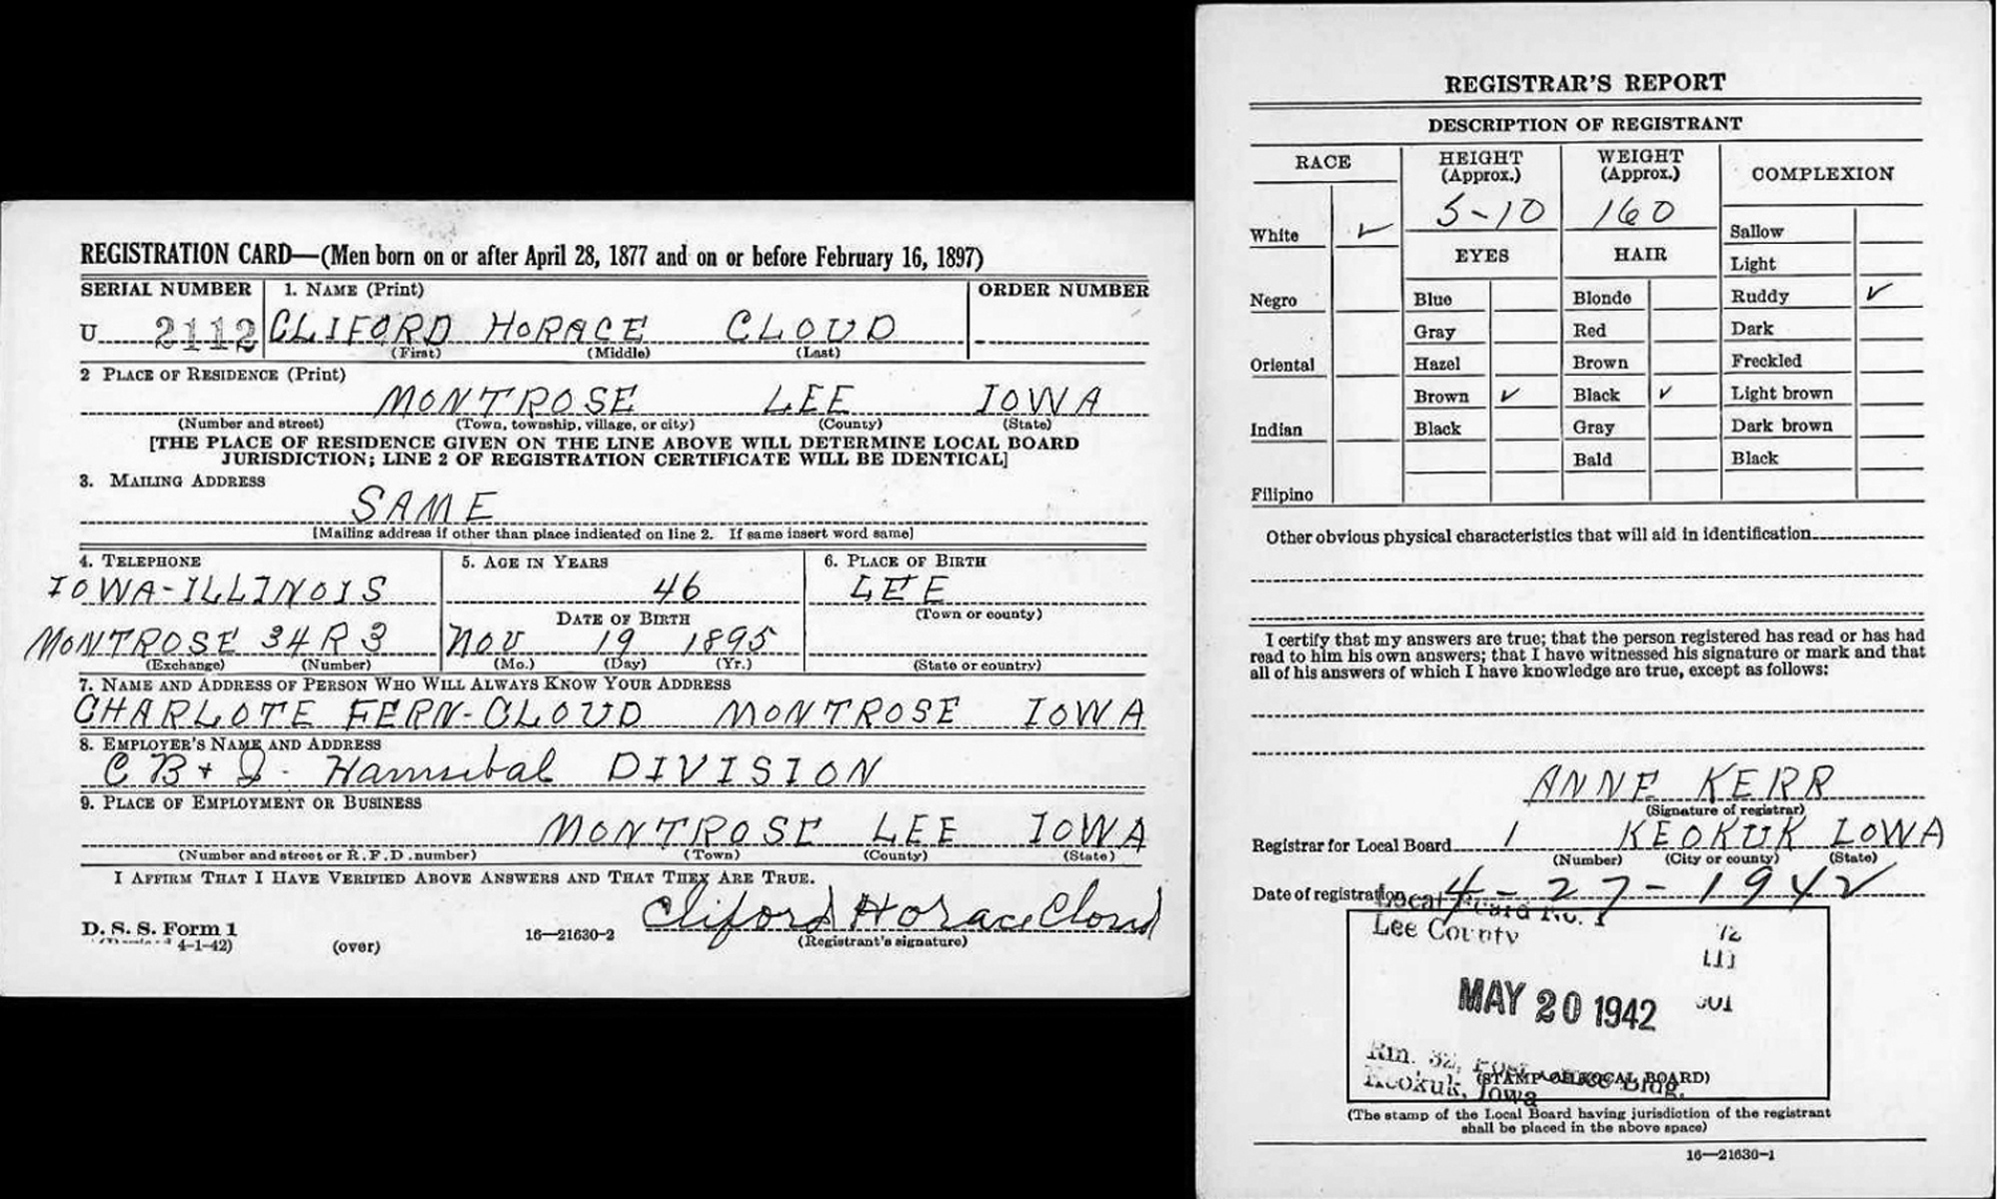 REGISTRATION CARD—(Men born on or after April 28, 1877 and on or before February 16, 1897)
SERIAL NUMBER 1. NAME (Print) ORDER NUMBER
U 2112 CLIFORD HORACE CLOUD
(First) (Middle) (Last)
2 PLACE OF RESIDENCE (Print)
MONTROSE LEE IOWA
(Number and street) (Town, township, village, or city) (County) (State)
[THE PLACE OF RESIDENCE GIVEN ON THE LINE ABOVE WILL DETERMINE LOCAL BOARD
JURISDICTION; LINE 2 OF REGISTRATION CERTIFICATE WILL BE IDENTICAL]
3. MAILING ADDRESS
SAME
[Mailing address if other than place indicated on line 2. If same insert word same]
4. TELEPHONE 5. AGE IN YEARS 6. PLACE OF BIRTH
IOWA-ILLINOIS 46 LEE
DATE OF BIRTH (Town or county)
MONTROSE 34 R 3 NOV 19 1895
(Exchange) (Number) (Mo.) (Day) (Yr.) (State or country)
7. NAME AND ADDRESS OF PERSON WHO WILL ALWAYS KNOW YOUR ADDRESS
CHARLOTE FERN-CLOUD MONTROSE IOWA
8. EMPLOYER'S NAME AND ADDRESS
C B + Q. Hannibal DIVISION
9. PLACE OF EMPLOYMENT OR BUSINESS
MONTROSE LEE IOWA
(Number and street or R. F. D. number) (Town) (County) (State)
I AFFIRM THAT I HAVE VERIFIED ABOVE ANSWERS AND THAT THEY ARE TRUE.
Cliford Horace Cloud
D. S. S. Form 1
4-1-42) (over) 16—21630-2 (Registrant's signature)
REGISTRAR'S REPORT
DESCRIPTION OF REGISTRANT
RACE HEIGHT (Approx.) WEIGHT (Approx.) COMPLEXION
5-10 160
White ✓ EYES HAIR Sallow
Light
Negro Blue Blonde Ruddy ✓
Gray Red Dark
Oriental Hazel Brown Freckled
Brown ✓ Black ✓ Light brown
Indian Black Gray Dark brown
Bald Black
Filipino
Other obvious physical characteristics that will aid in identification
I certify that my answers are true; that the person registered has read or has had
read to him his own answers; that I have witnessed his signature or mark and that
all of his answers of which I have knowledge are true, except as follows:
ANNE KERR
(Signature of registrar)
Registrar for Local Board 1 KEOKUK IOWA
(Number) (City or county) (State)
Date of registration 4-27-1942
Local Board No. 1
Lee County
MAY 20 1942
Rm. 32, Post Office Bldg.
Keokuk, Iowa
(STAMP OF LOCAL BOARD)
(The stamp of the Local Board having jurisdiction of the registrant
shall be placed in the above space)
16—21630-1